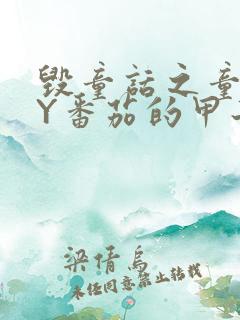 毁童话之童
Y番茄的甲
梁倩鸟
未经同意禁止转载